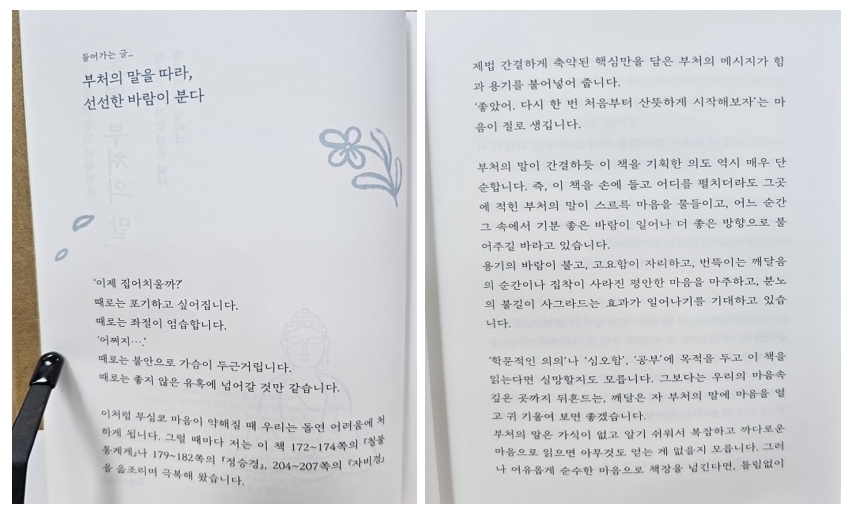 들어가는 글_
부처의 말을 따라,
선선한 바람이 분다
'이제 집어치울까?'
때로는 포기하고 싶어집니다.
때로는 좌절이 엄습합니다.
'어쩌지….'
때로는 불안으로 가슴이 두근거립니다.
때로는 좋지 않은 유혹에 넘어갈 것만 같습니다.
이처럼 무심코 마음이 약해질 때 우리는 돌연 어려움에 처
하게 됩니다. 그럴 때마다 저는 이 책 172~174쪽의 『칠불
통계게』나 179~182쪽의 『정승경』, 204~207쪽의 『자비경』
을 읊조리며 극복해 왔습니다.
제법 간결하게 축약된 핵심만을 담은 부처의 메시지가 힘
과 용기를 불어넣어 줍니다.
'좋았어. 다시 한 번 처음부터 산뜻하게 시작해보자'는 마
음이 절로 생깁니다.
부처의 말이 간결하듯 이 책을 기획한 의도 역시 매우 단
순합니다. 즉, 이 책을 손에 들고 어디를 펼치더라도 그곳
에 적힌 부처의 말이 스르륵 마음을 물들이고, 어느 순간
그 속에서 기분 좋은 바람이 일어나 더 좋은 방향으로 불
어주길 바라고 있습니다.
용기의 바람이 불고, 고요함이 자리하고, 번뜩이는 깨달음
의 순간이나 집착이 사라진 평안한 마음을 마주하고, 분노
의 불길이 사그라드는 효과가 일어나기를 기대하고 있습
니다.
'학문적인 의의'나 '심오함', '공부'에 목적을 두고 이 책을
읽는다면 실망할지도 모릅니다. 그보다는 우리의 마음속
깊은 곳까지 뒤흔드는, 깨달은 자 부처의 말에 마음을 열
고 귀 기울여 보면 좋겠습니다.
부처의 말은 가식이 없고 알기 쉬워서 복잡하고 까다로운
마음으로 읽으면 아무것도 얻는 게 없을지 모릅니다. 그러
나 여유롭게 순수한 마음으로 책장을 넘긴다면, 틀림없이